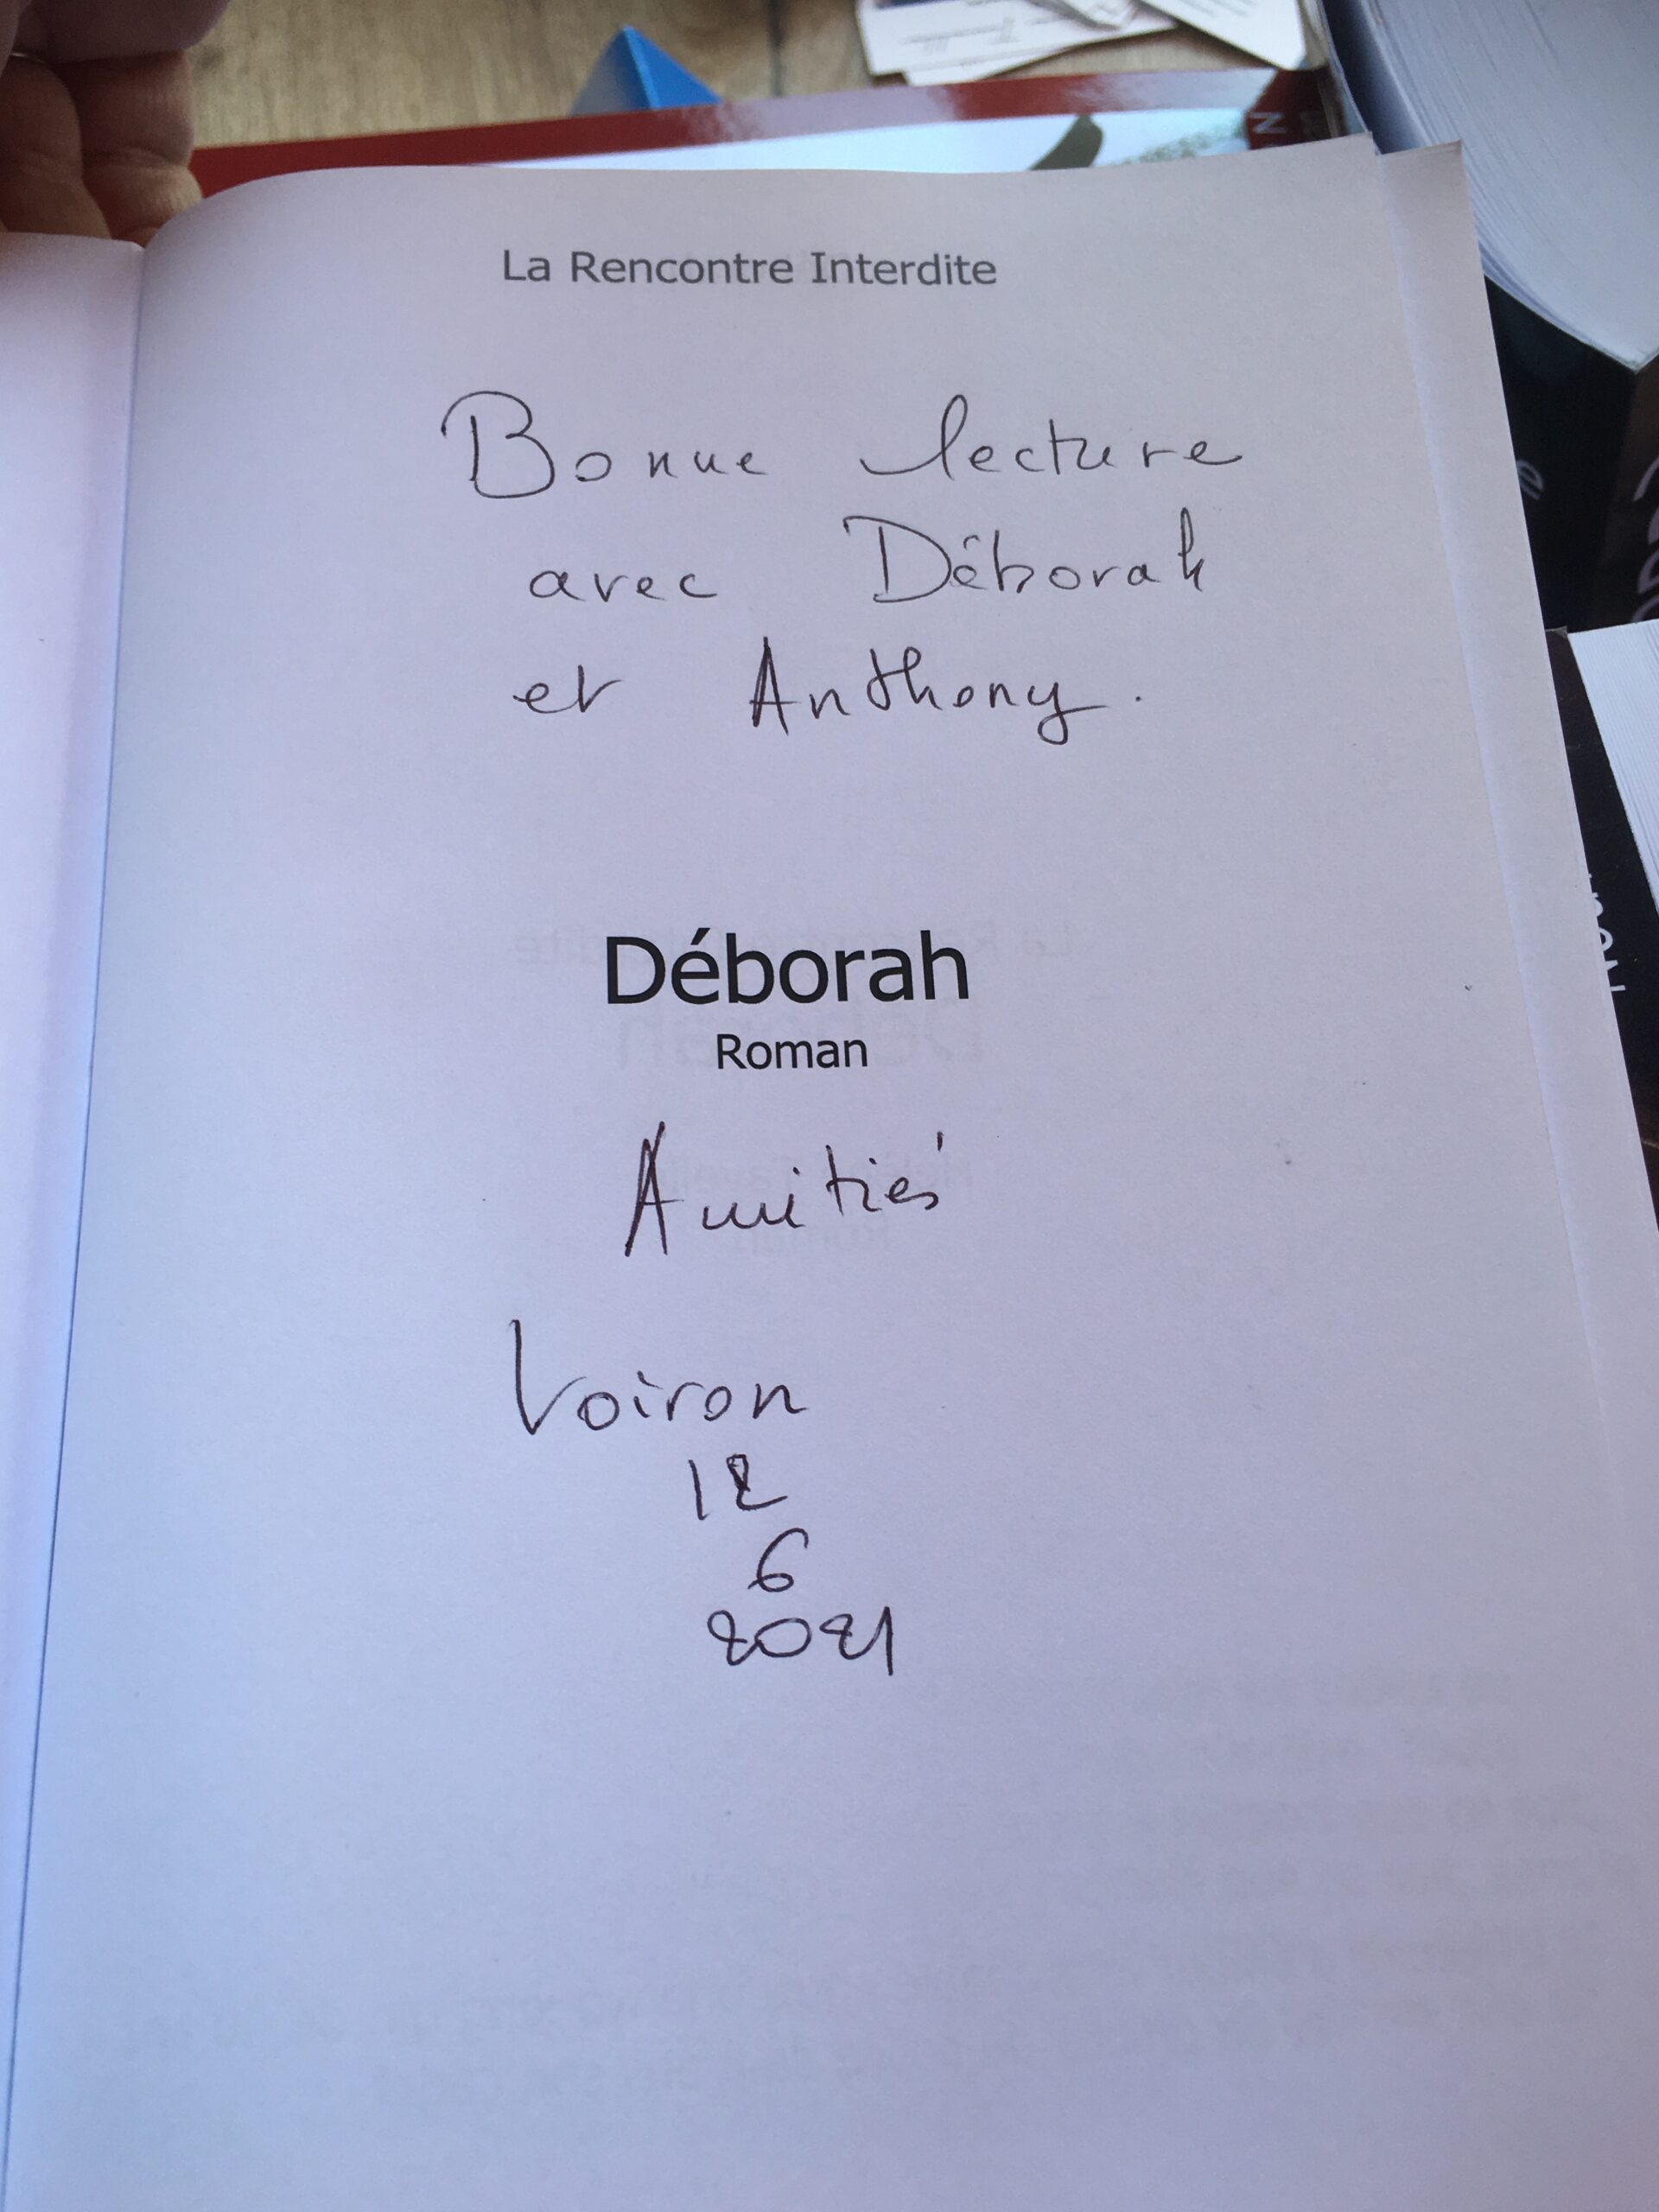 La Rencontre Interdite
Bonne lecture
avec Déborah
et Anthony.
Déborah
Roman
Amitiés
Voiron
12
6
2021